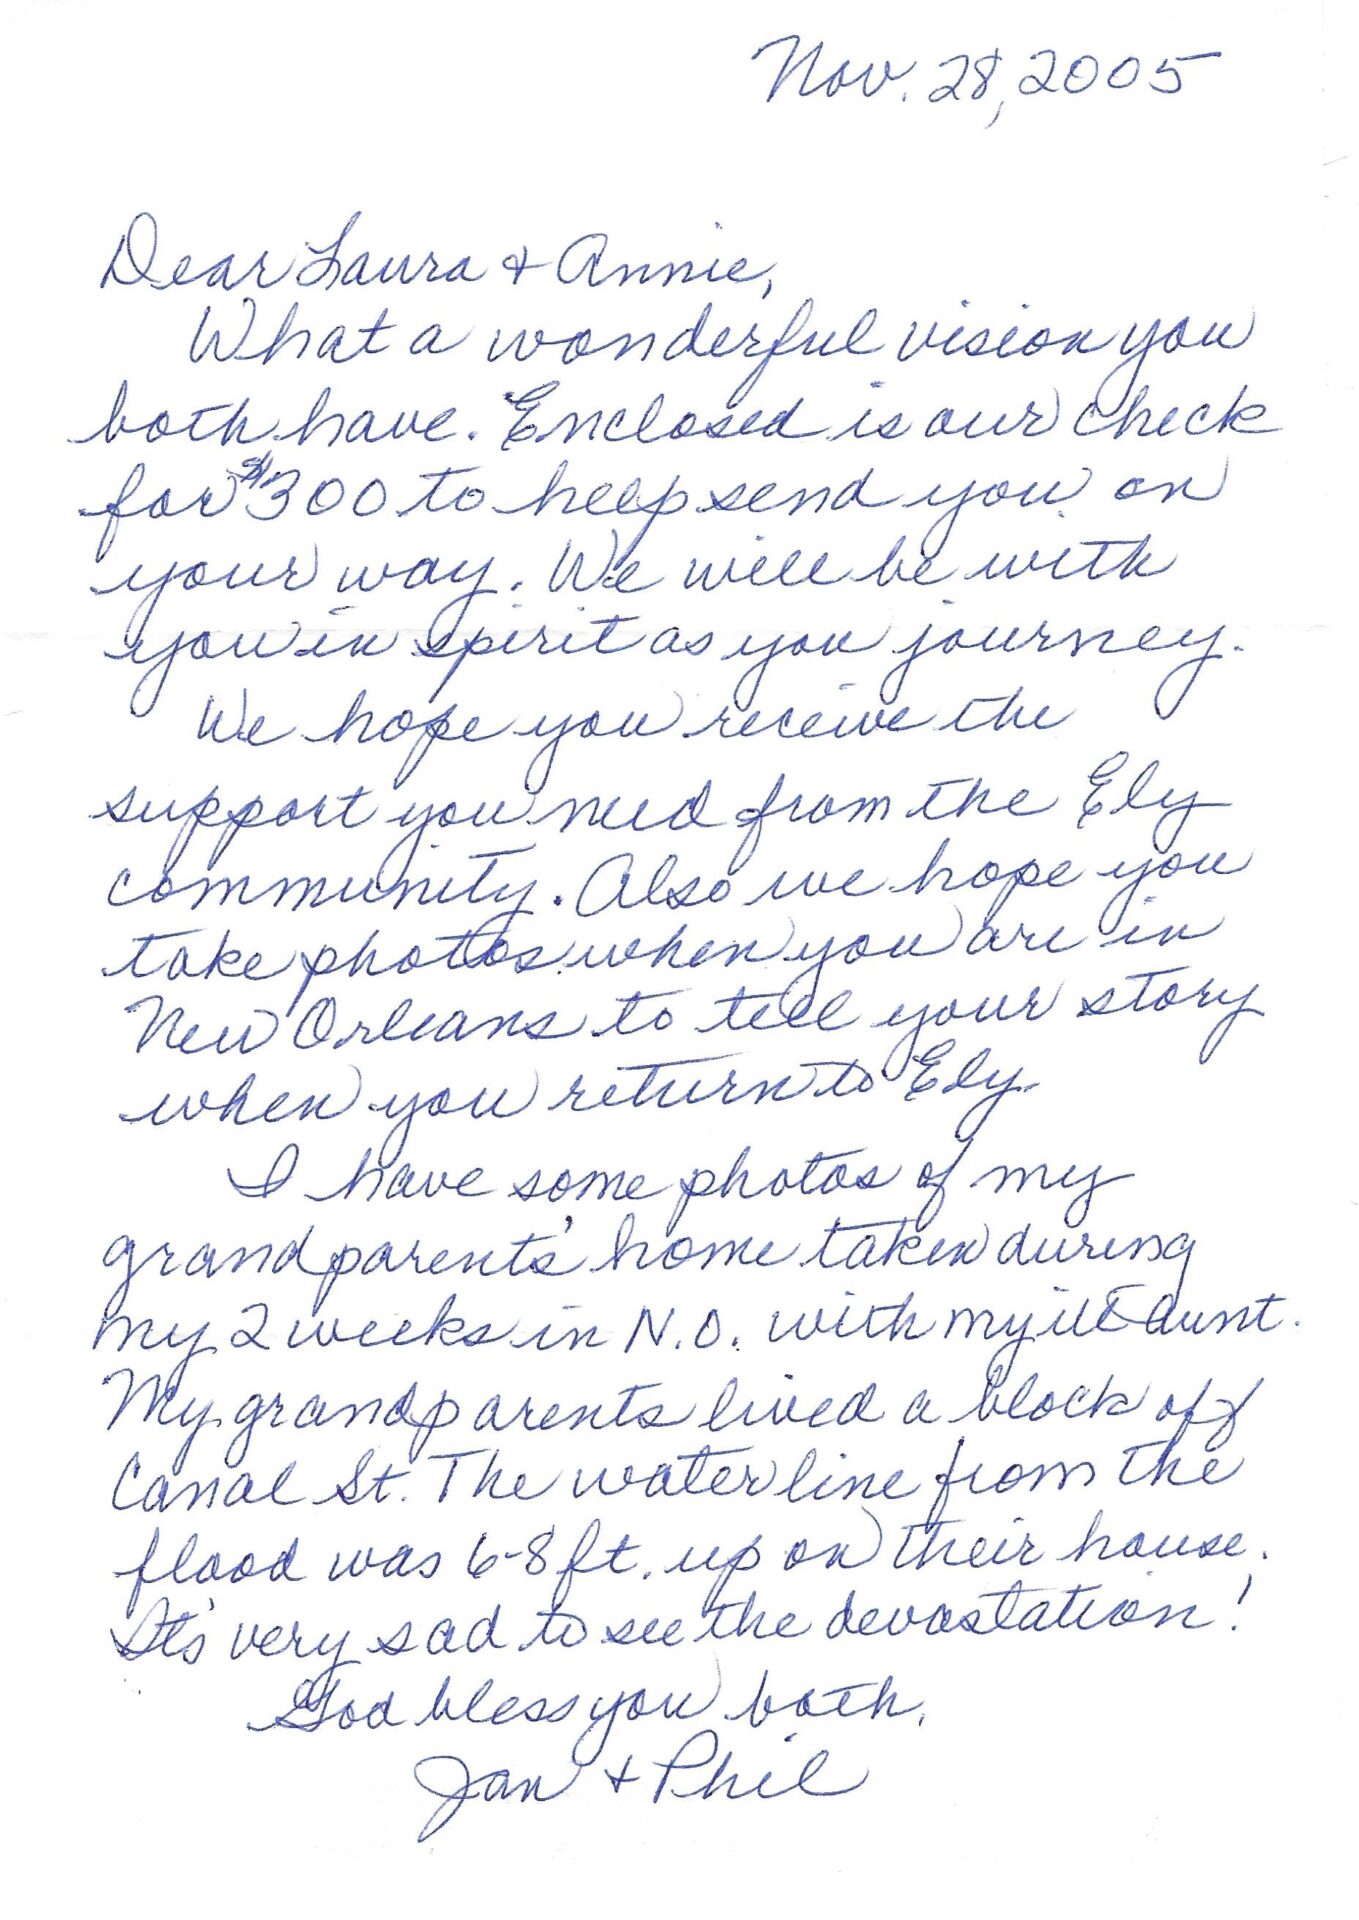 Nov. 28, 2005
Dear Laura & Annie,
What a wonderful vision you
both have. Enclosed is our check
for $300 to help send you on
your way. We will be with
you in spirit as you journey.
We hope you receive the
support you need from the Ely
community. Also we hope you
take photos when you are in
New Orleans to tell your story
when you return to Ely.
I have some photos of my
grandparents' home taken during
my 2 weeks in N.O. with my ill aunt.
My grandparents lived a block off
Canal St. The water line from the
flood was 6-8 ft. up on their house.
It's very sad to see the devastation!
God bless you both,
Jan & Phil